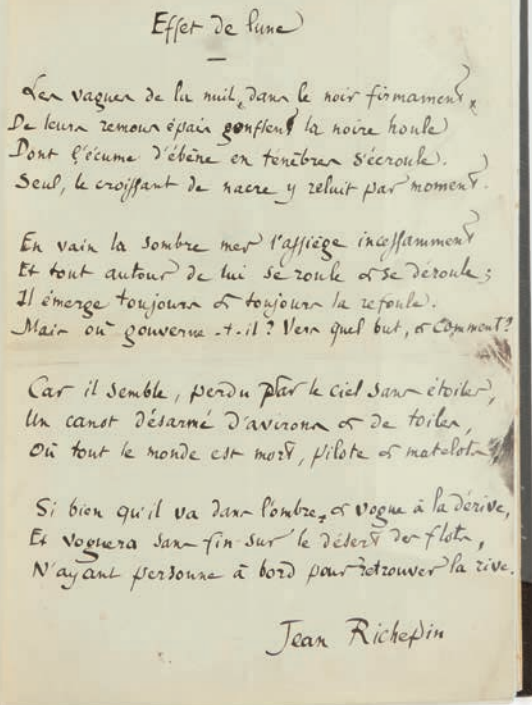 Effet de lune
Les vagues de la nuit, dans le noir firmament
De leurs remous épais gonflent la noire houle
Dont l'écume d'ébène en ténèbres s'écroule.
Seul, le croissant de nacre y reluit par moment.
En vain la sombre mer l'assiège incessamment
Et tout autour de lui se roule & se déroule ;
Il émerge toujours & toujours la refoule.
Mais où gouverne-t-il ? Vers quel but, & comment ?
Car il semble, perdu par le ciel sans étoiles,
Un canot désarmé d'avirons & de toiles,
Où tout le monde est mort, pilote & matelots,
Si bien qu'il va dans l'ombre, & vogue à la dérive,
Et voguera sans fin sur le désert des flots,
N'ayant personne à bord pour retrouver la rive.
Jean Richepin